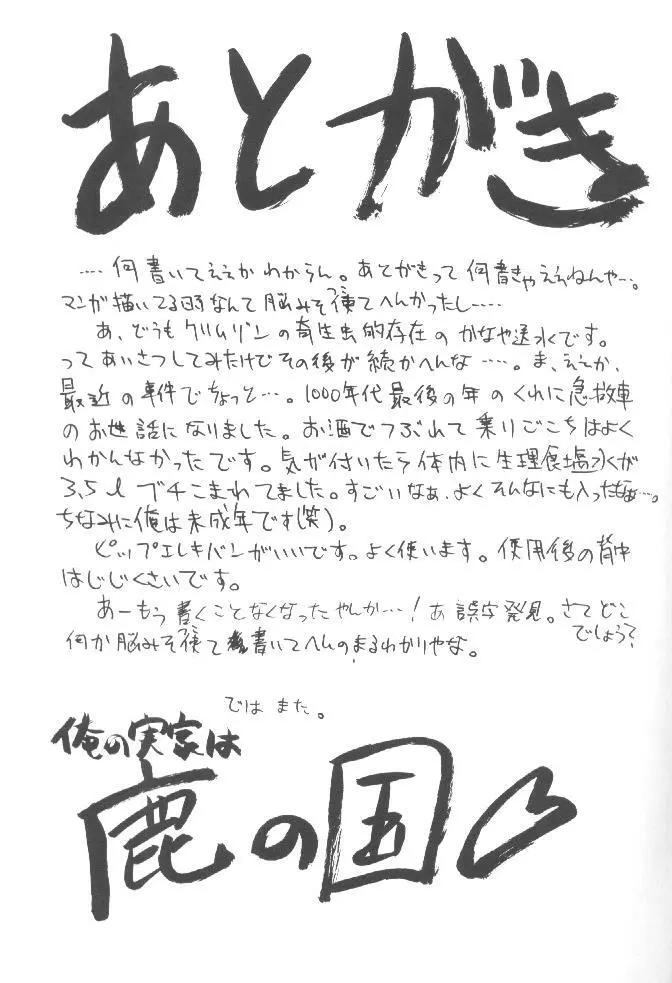 あとがき
……何書いてええかわからん。あとがきって何書きゃええねんや…。
マンガ描いてる時なんて脳みそ使てへんかったし……
あ、どうもクリムゾンの寄生虫的存在のかなや送水です。
ってあいさつしてみたけどその後が続かへんな……。ま、ええか、
最近の事件でちょっと…。1000年代最後の年のくれに急救車
のお世話になりました。お酒でつぶれて乗りごこちはよく
わかんなかったです。気が付いたら体内に生理食塩水が
3,5ℓブチこまれてました。すごいなぁ、よくそんなにも入ったなぁ…。
ちなみに俺は未成年です(笑)。
ピップエレキバンがいいです。よく使います。使用後の背中
はじじくさいです。
あーもう書くことなくなったやんか…!あ誤字発見。さてどこ
でしょう?
何か脳みそ使て書いてへんのまるわかりやな。
ではまた。
俺の実家は
鹿の国